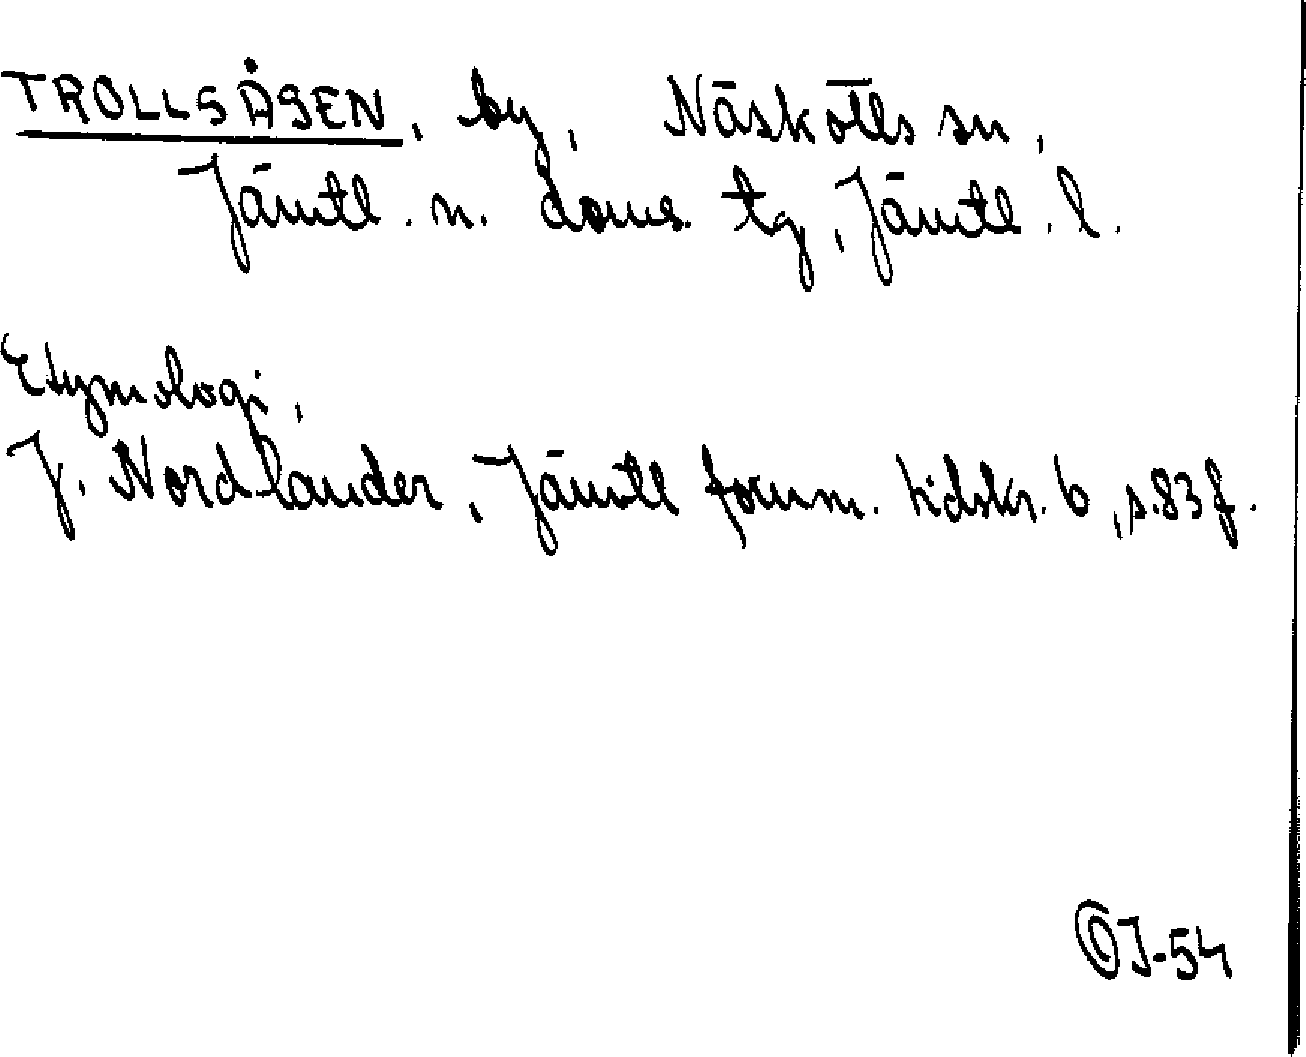 TROLLSÅSEN, by, Näskotts sn,
Jämtl. n. doms. tg, Jämtl. l.
Etymologi,
J. Nordlander, Jämtl fornm. tidskr. 6, s.83 f.
J-54